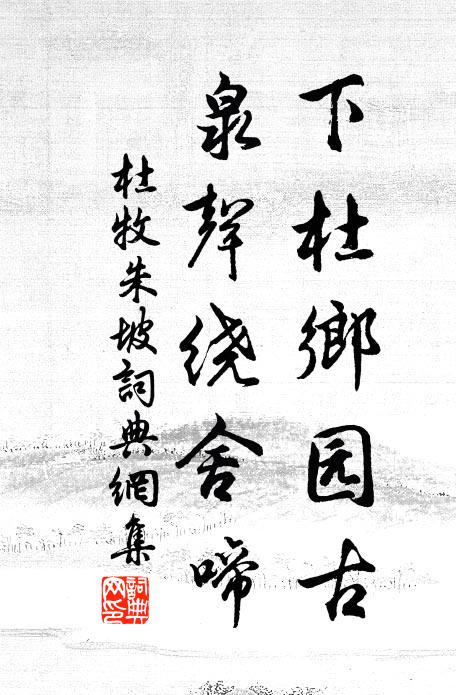 下杜鄉园古
泉聲绕舍啼
杜牧朱坡詞典網集
詞典网印